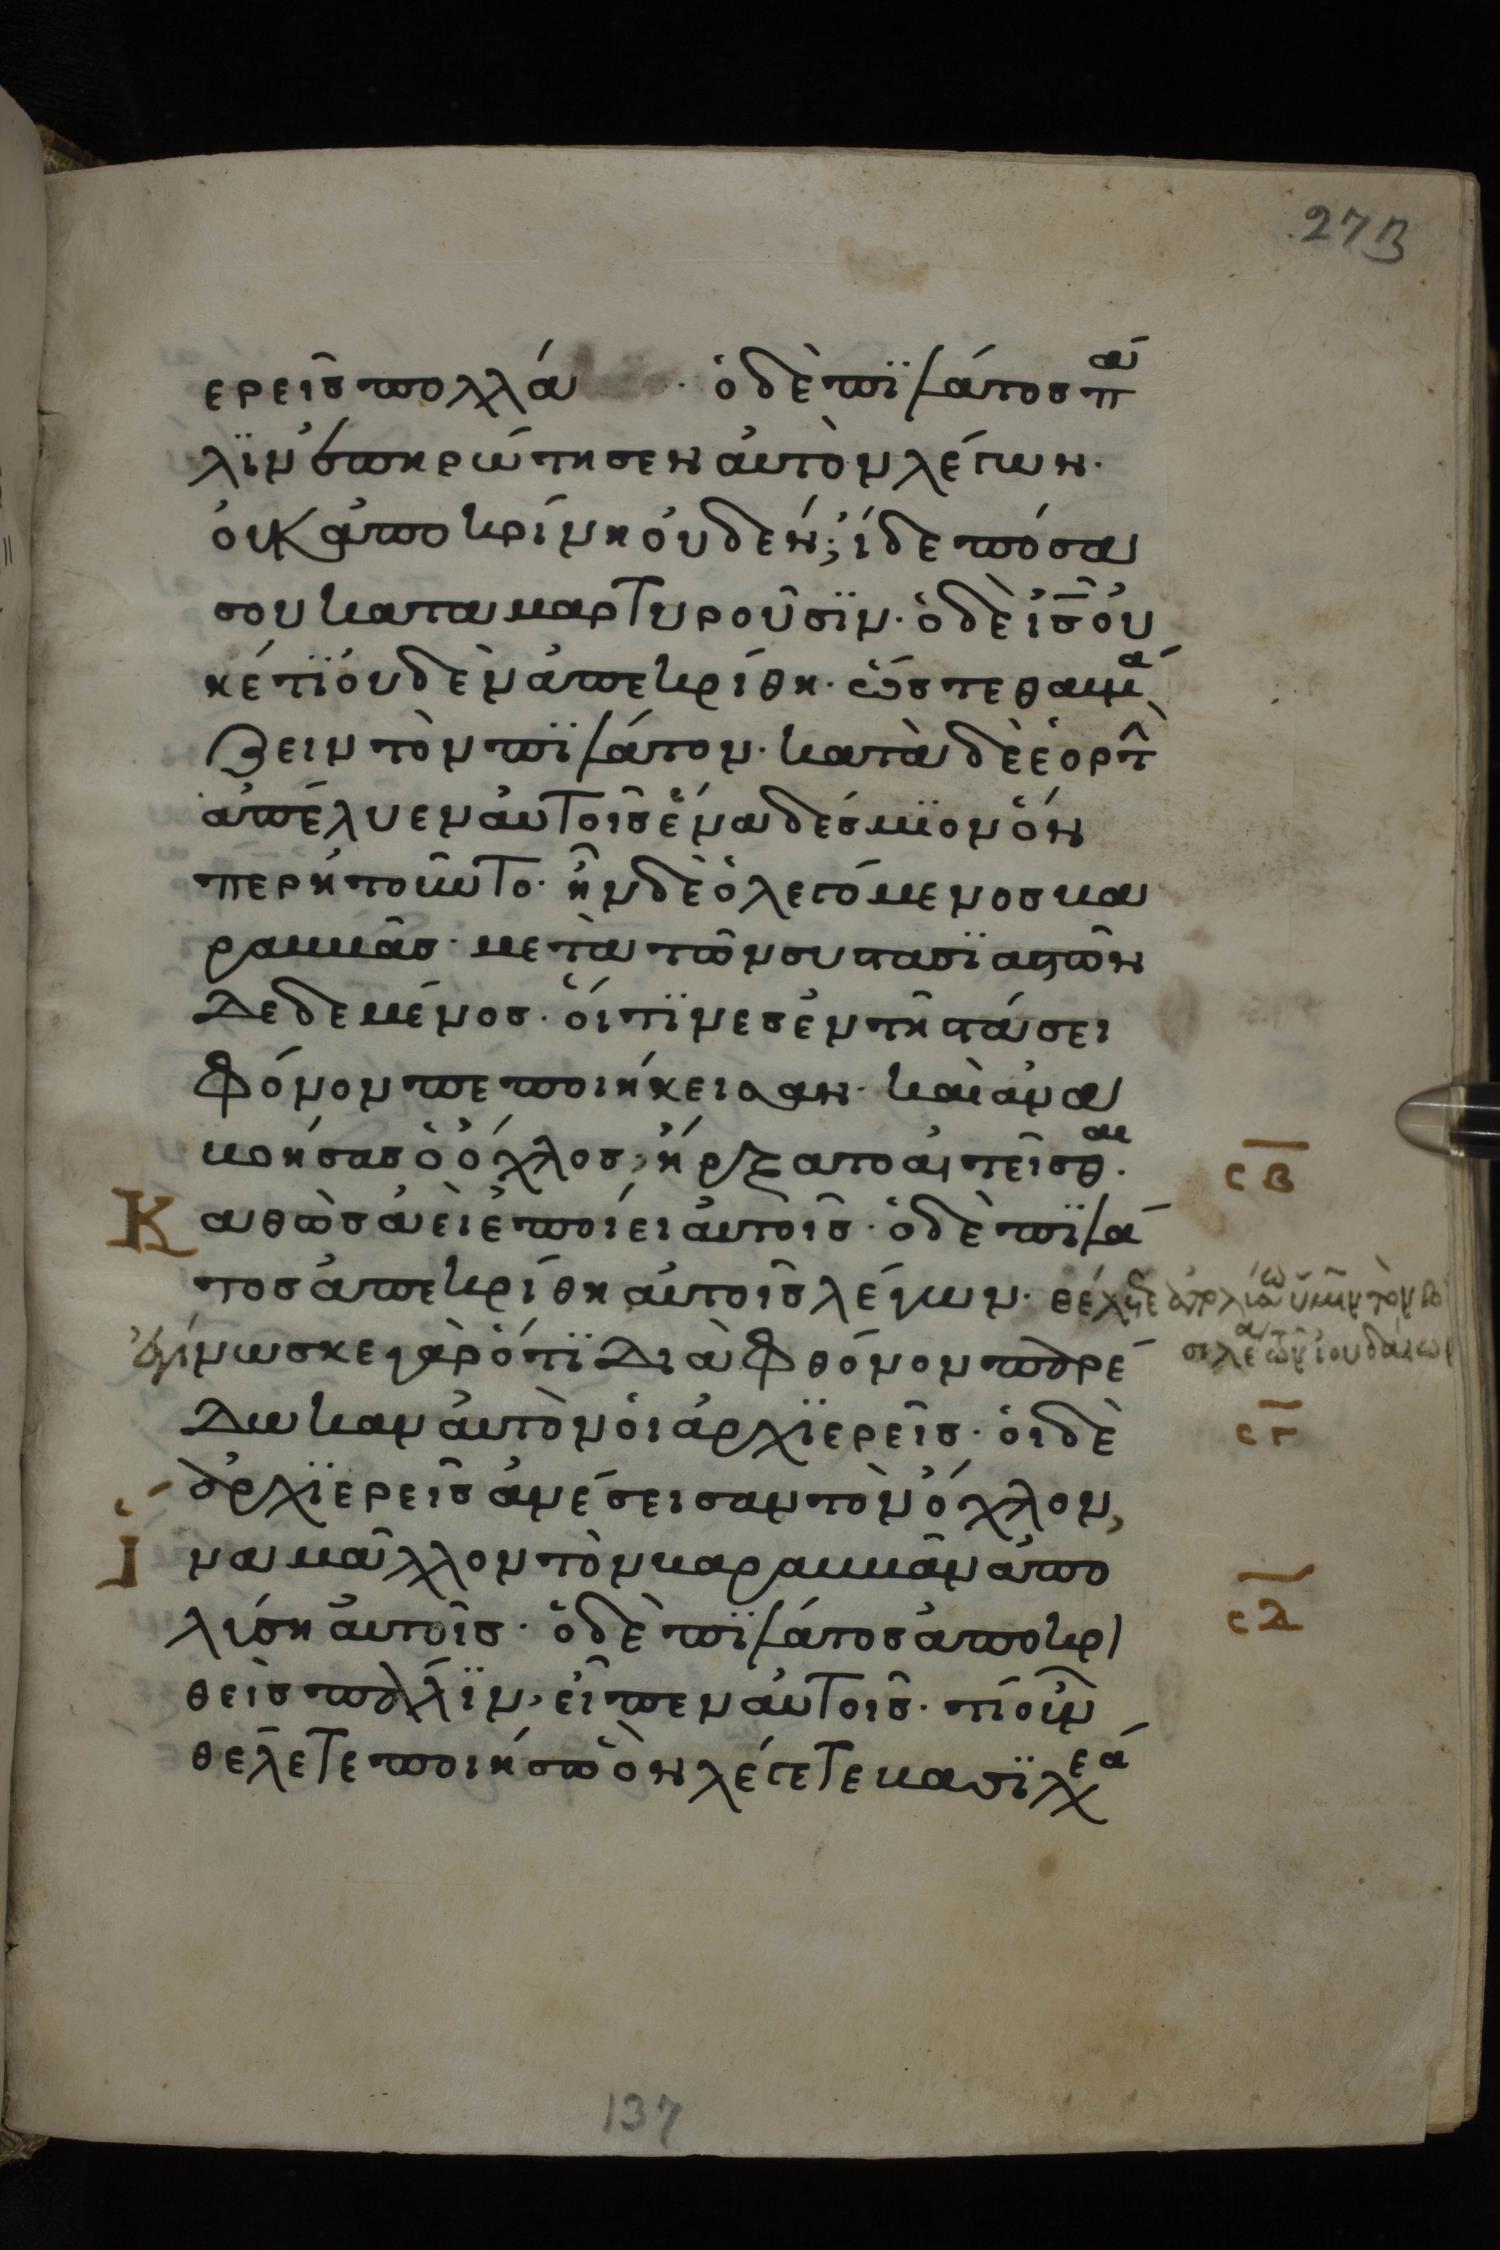 273
ερεῖσ πολλά · ὁ δὲ πϊλάτοσ πά
λϊν ἐπηρώτησεν ἀυτὸν λέγων·
ὀυκ ἀποκρίνη ὀυδέν; ἴδε πόσα
σου καταμαρτυροῦσϊν· ὁ δὲ ἰ̅ς̅ ὀυ
κέτϊ ὀυδὲν ἀπεκρίθη· ὥστε θαυμά
ζειν τὸν πϊλάτον· κατὰ δὲ ἑορτὴ
ἀπέλυεν ἀυτοῖσ ἕνα δέσμϊον ὅν
περ ἠτοῦντο· ἦν δὲ ὁ λεγόμενοσ βα
ραββᾶσ· μετὰ τῶν συστασϊαστῶν
δεδεμένοσ· ὅιτϊνεσ ἐν τῆ στάσει
φόνον πεποιήκεισαν· καὶ ἀνα
βοήσασ ὁ ὄχλοσ, ἤρξατο αἰτεῖσθαι·
σ̅β̅
Καθὼσ ἀεὶ ἐποίει ἀυτοῖσ· ὁ δὲ πϊλά
τοσ ἀπεκρίθη ἀυτοῖσ λέγων· θέλετε ἀπολύσω ὑμῖν τὸν βα
σιλέα τῶν ἰουδαίων
ἐγίνωσκε γὰρ ὅτϊ διὰ φθόνον παρέ
δωκαν ἀυτὸν ὁι ἀρχϊερεῖσ· ὁι δὲ
σ̅γ̅
ἀρχϊερεῖσ ἀνέσεισαν τὸν ὄχλον,
ἵνα μᾶλλον τὸν βαραββᾶν ἀπο
λύση ἀυτοῖσ· ὁ δὲ πϊλάτοσ ἀποκρι
σ̅δ̅
θεὶσ πάλϊν, εἶπεν ἀυτοῖσ· τί οὖν
θέλετε ποιήσω ὃν λέγετε βασϊλέα
137